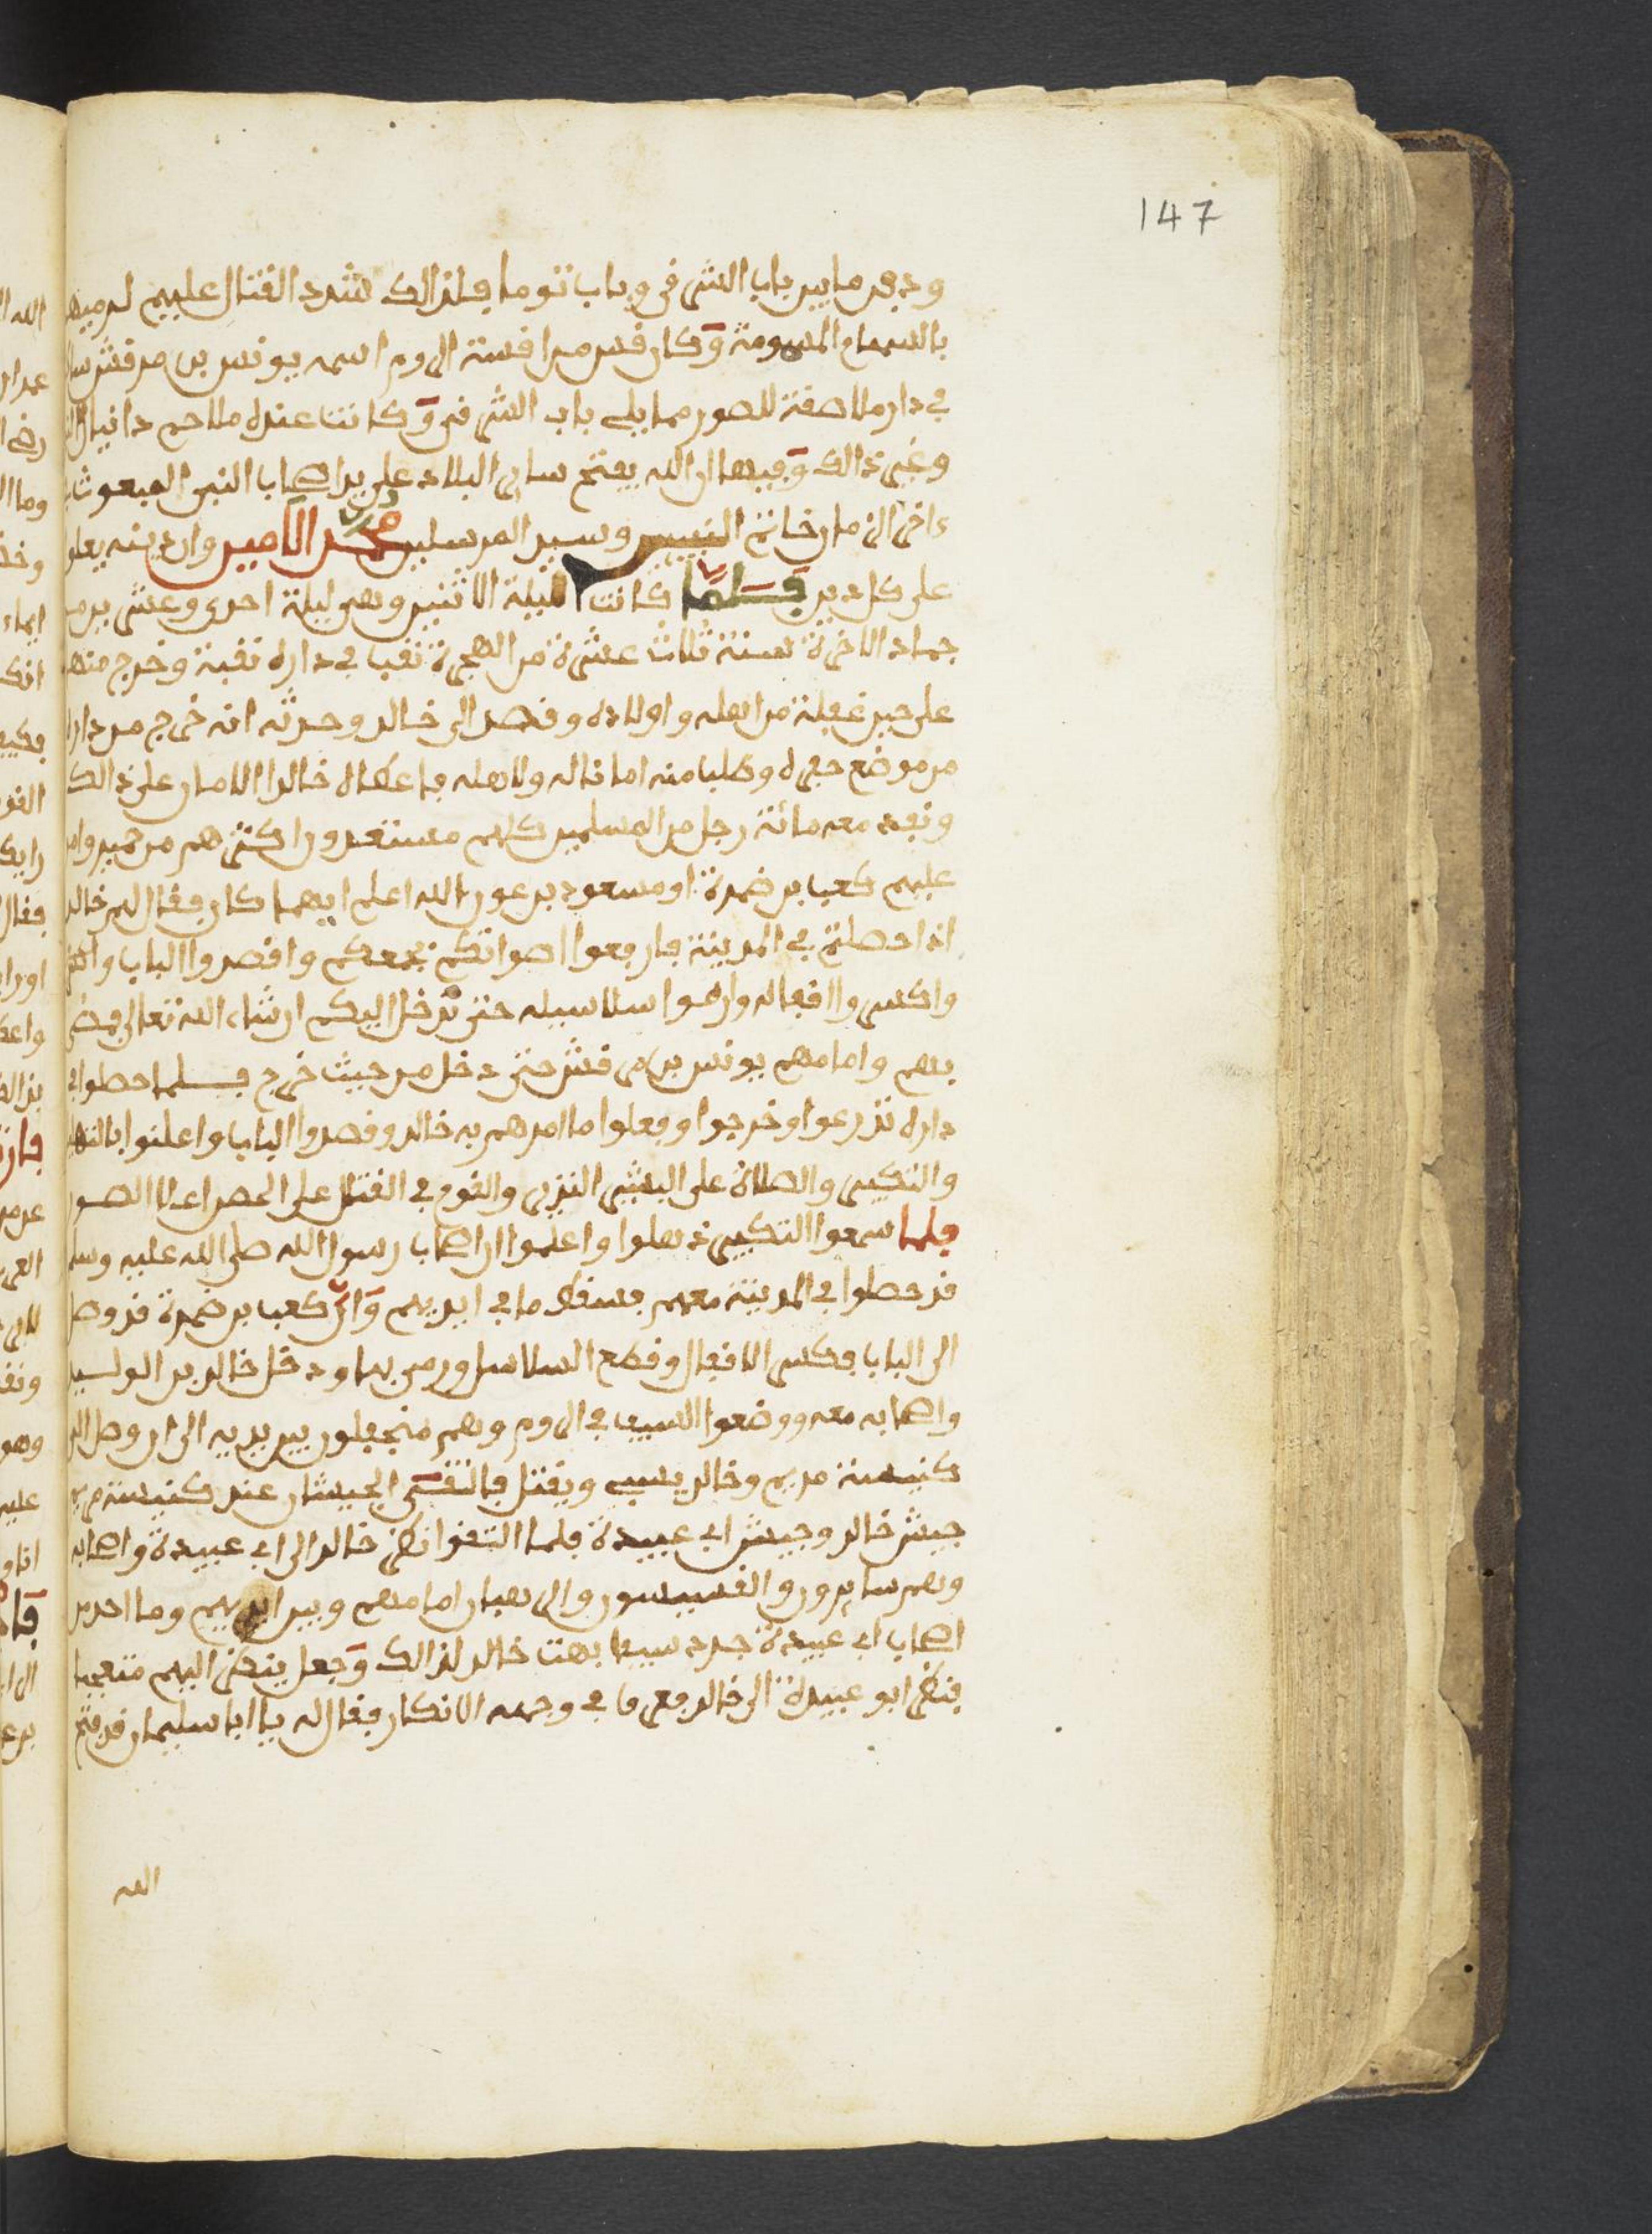 147
ودفن ما بين باب الشرقي وباب توما فلذالك شدد القتال عليهم لرميهم
بالسهام المسمومة وكان قس من اقسة الروم اسمه يونس بن مرقش ساكن
في دار ملاصقة للصور مما يلي باب الشرقي وكانت عنده ملاحم دانيال
وغير ذالك وفيها ان الله يفتح ساير البلاد على يد اصحاب النبي المبعوث
ءاخر الزمان خاتم النبيين وسيد المرسلين محمد الامين وان دينه يعلو
على كل دين فلما كانت الليلة الاثنين وهي ليلة احدى وعشرين من
جماد الاخرة سنة ثلاث عشرة من الهجرة نقب في داره نقبة وخرج منها
على حين غفلة من اهله واولاده وقصد الى خالد وحدثه انه خرج من داره
من موضع حفره وطلب منه امانا له ولاهله فاعطاه خالد الامان على ذالك
ونفد معه مائة رجل من المسلمين كلهم مستعدون اكثرهم من حمير وامر
عليهم كعب بن ضمرة او مسعود بن عون الله اعلم ايهما كان فقال لهم خالد
اذا حصلتم في المدينة فارفعوا اصواتكم بجمعكم واقصدوا الباب
واكسروا اقفاله وارموا سلاسيله حتى ندخل اليكم ان شاء الله تعالى فمضى
بهم وامامهم يونس بن مرقش حتى دخل من حيث خرج فلما حصلوا في
داره تذرعوا وخرجوا وفعلوا ما امرهم به خالد وقصدوا الباب واعلنوا بالتهليل
والتكبير والصلاة على البشير النذير والقوم في القتال على الحصر اعلا الصور
فلما سمعوا التكبير ذهلوا واعلموا ان اصحاب رسول الله صلى الله عليه وسلم
قد حصلوا في المدينة معهم فسقط ما في ايديهم وان كعب بن ضمرة قد وصل
الى الباب فكسر الاقفال وقطع السلاسل ورمى بها ودخل خالد بن الوليد
واصحابه معه ووضعوا السيف في الروم وهم منجفلون بين يديه الى ان وصل الى
كنيسة مريم وخالد يسبي ويقتل فالتقى الجيشان عند كنيسة مريم
جيش خالد وجيش ابي عبيدة فلما التقوا نظر خالد الى ابي عبيدة واصحابه
وهم سايرون والقسيسون والرهبان امامهم وبين ايديهم وما احد من
اصحاب ابي عبيدة جرد سيفا بهت خالد لذالك وجعل ينظر اليهم متعجبا
فنظر ابو عبيدة الى خالد فعرف في وجهه الانكار فقال له يا ابا سليمان قد فتح
الله